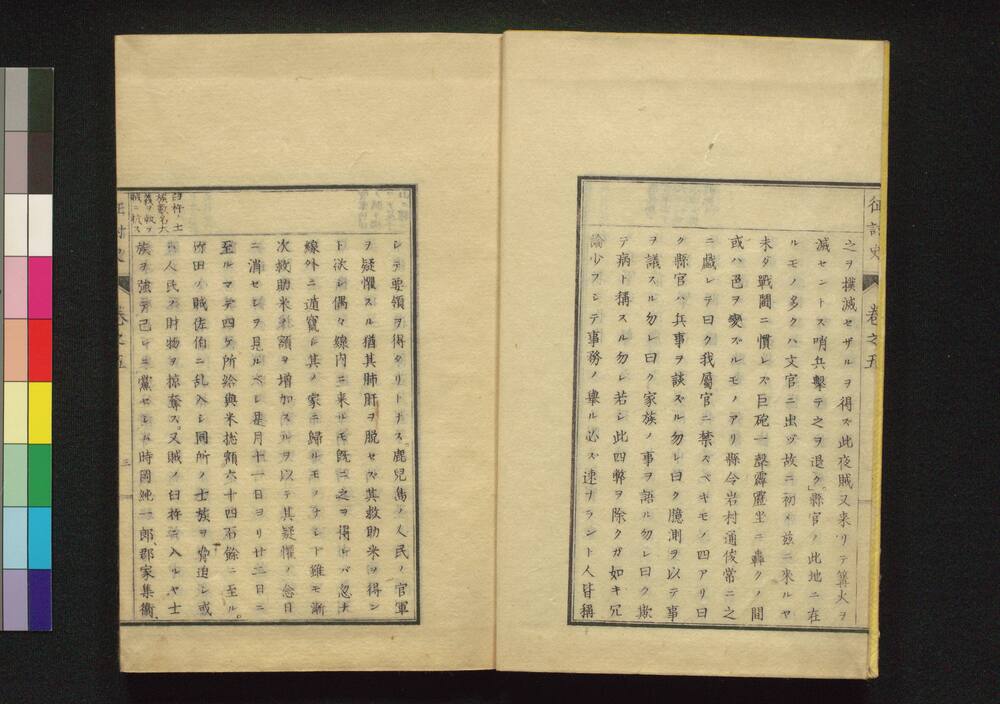 征討史 卷之五
之ヲ撲滅セザルヲ得ズ此夜賊又来リテ篝火ヲ
滅セントス哨兵擊テ之ヲ退ク」縣官ノ此地ニ在
ルモノ多クハ文官ニ出ヅ故ニ初メ茲ニ来ルヤ
未ダ戰鬪ニ慣レズ巨砲一聲霹靂坐ニ轟クノ間
或ハ色ヲ變ズルモノアリ縣令岩村通俊常ニ之
ニ戯レテ曰ク我屬官ニ禁ズベキモノ四アリ曰
ク縣官ハ兵事ヲ談ズル勿レ曰ク臆測ヲ以テ事
ヲ議スル勿レ曰ク家族ノ事ヲ語ル勿レ曰ク欺
テ病ト稱スル勿レ若シ此四弊ヲ除クガ如キ冗
論少フシテ事務ノ擧ル必ズ速ヲラント人皆稱
シテ要領ヲ得タリトナス」鹿兒島ノ人民ノ官軍
ヲ疑懼スル猶其肺肝ヲ脱セズ其救助米ヲ得ン
ト欲シ偶々線内ニ来ルモ既ニ之ヲ得レバ忽チ
線外ニ遁竄シ其ノ家ニ歸ルモノナシト雖モ漸
次救助米ノ額ヲ増加スルヲ以テ其疑懼ノ念日
ニ消セシヲ見ルベシ是月十一日ヨリ廿二日ニ
至ルマデ四ケ所給與米總額六十四石餘ニ至ル。
竹田ノ賊佐伯ニ乱入シ同所ノ士族ヲ脅迫シ或
ハ人民ノ財物ヲ掠奪ス。又賊ノ臼杵ニ入ルヤ士
族ヲ強テ己レニ黨セシム時岡純一郎、郡家集衞、
臼杵ノ士
族數名大
義ヲ執テ
賊ニ抗ス
征討史 卷之五
三